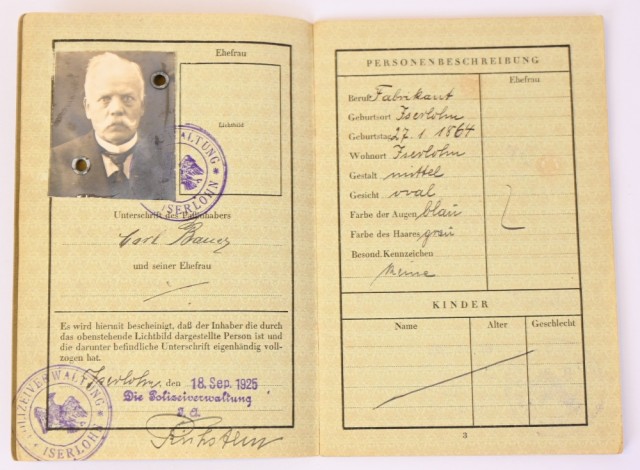 Ehefrau
Lichtbild
POLIZEIVERWALTUNG
* ISERLOHN *
Unterschrift des Paßinhabers
Carl
und seiner Ehefrau
Es wird hiermit bescheinigt, daß der Inhaber die durch
das obenstehende Lichtbild dargestellte Person ist und
die darunter befindliche Unterschrift eigenhändig voll-
zogen hat.
Iserlohn, den 18. Sep. 1925
Die Polizeiverwaltung
I. A.
POLIZEIVERWALTUNG
* ISERLOHN *
PERSONENBESCHREIBUNG
Ehefrau
Beruf Fabrikant
Geburtsort Iserlohn
Geburtstag 27. 1. 1864
Wohnort Iserlohn
Gestalt mittel
Gesicht oval
Farbe der Augen blau
Farbe des Haares grau
Besond. Kennzeichen
Keine
KINDER
Name Alter Geschlecht
3